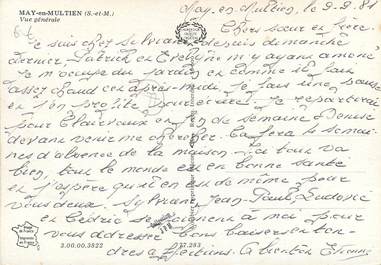 MAY-en-MULTIEN (S.-et-M.)
Vue générale
May-en-Multien, le 9.9.81
Chers sœur et frère
Je suis chez Sylviane depuis dimanche
dernier. Patrick et Evelyne m'y ayant amené
Je m'occupe du jardin et comme il fait
assez chaud cet après-midi je fais une pause
et j'en profite pour écrire. Je repartirai
pour Clairvaux en fin de semaine Denise
devant venir me chercher. Ça fera semai-
nes d'absence de la maison. Ici tout va
bien, tout le monde est en bonne santé
et j'espère qu'il en est de même pour
vous deux. Sylviane, Jean-Paul, Ludovic
et Cédric se joignent à moi pour
vous adresser bons baisers et ten-
dres affections. A bientôt Etienne
3.00.00.3822
37.283